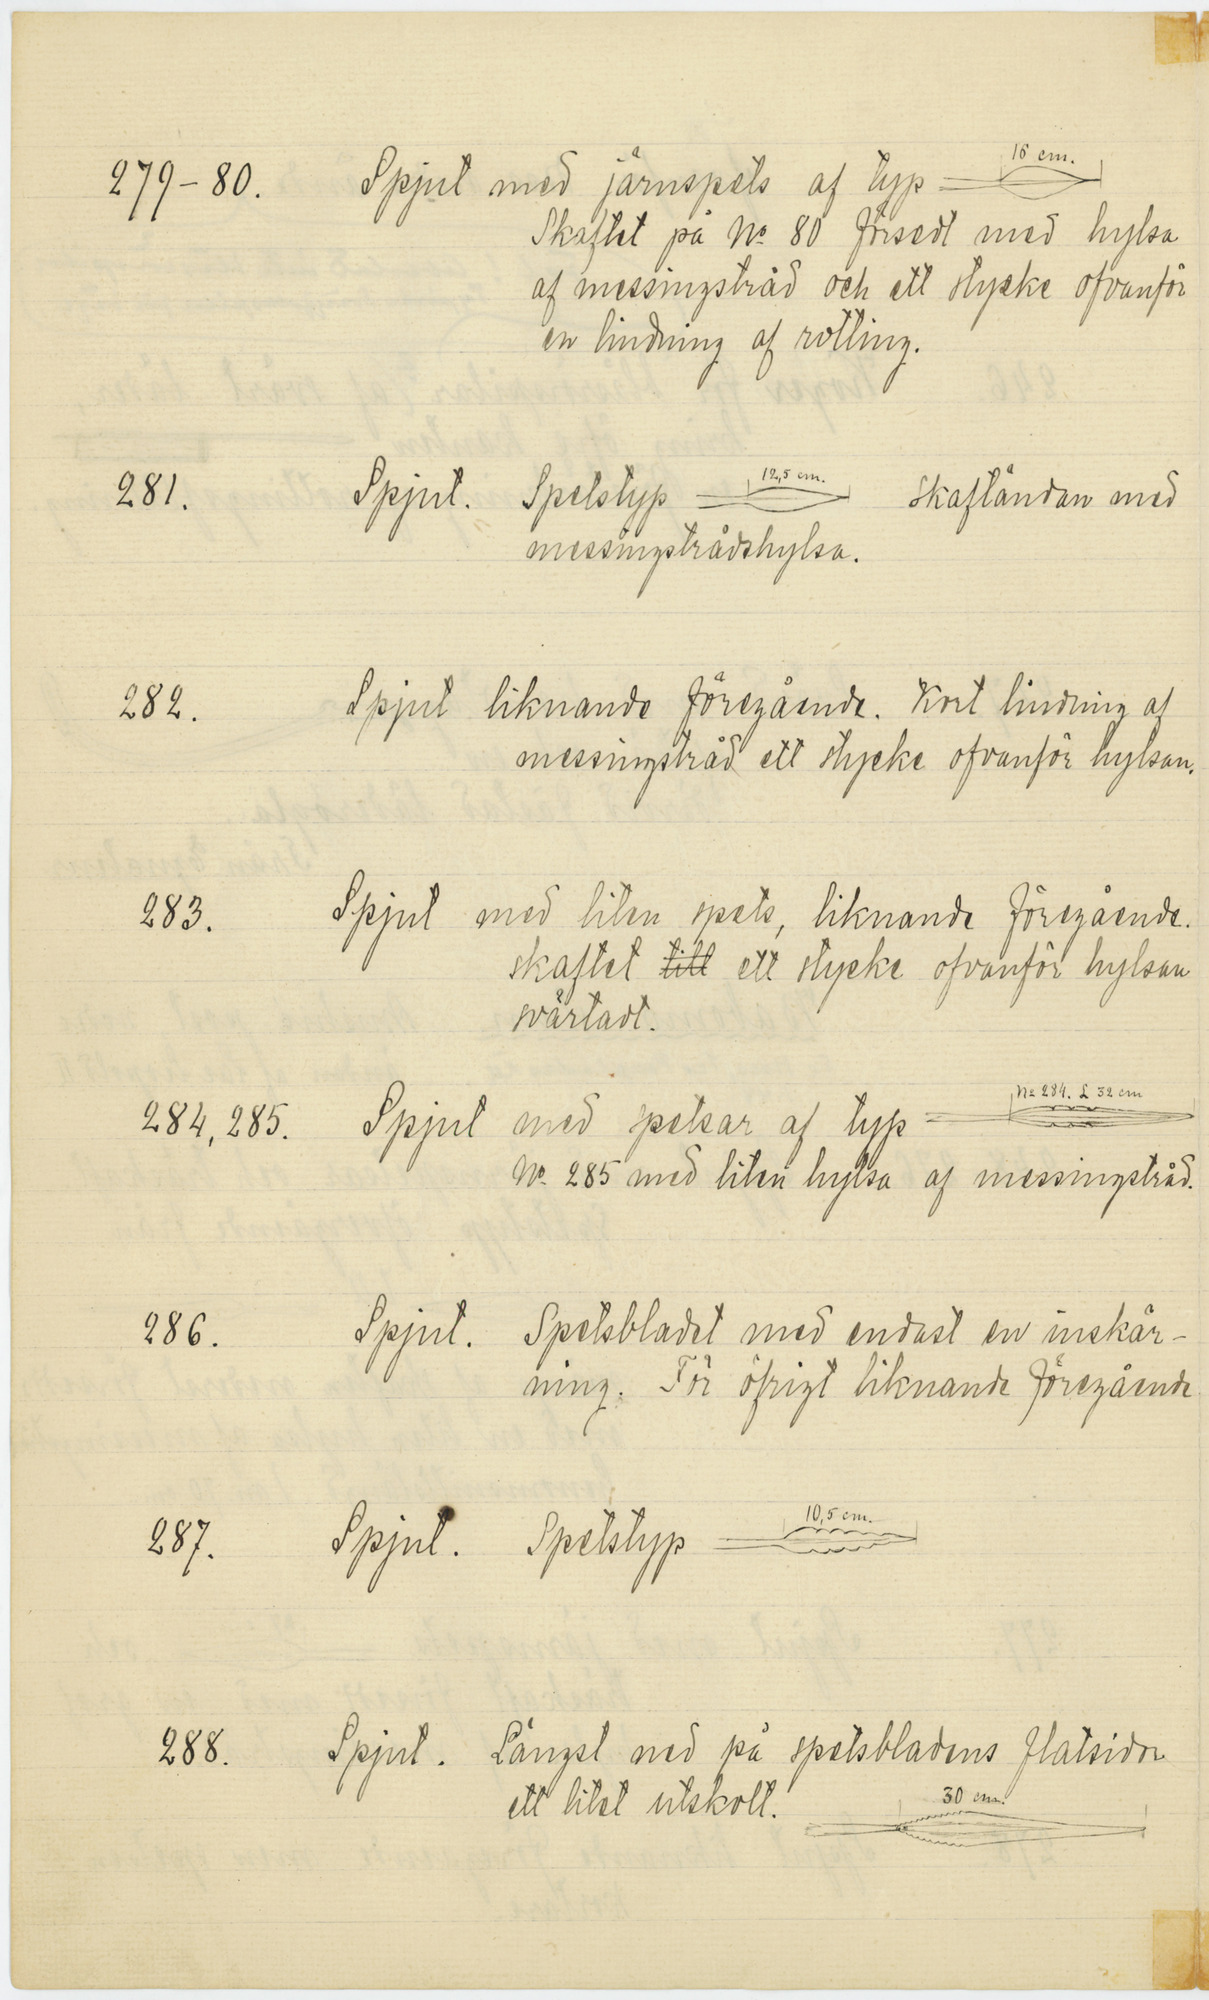 279-80. Spjut med järnspets af typ 16 cm.
Skaftet på No 80 försedt med hylsa
af messingstråd och ett stycke ofvanför
en lindning af rotting.
281. Spjut. Spetstyp 12,5 cm. Skaftändan med
messingstrådshylsa.
282. Spjut liknande föregående. Kort lindning af
messingstråd ett stycke ofvanför hylsan.
283. Spjut med liten spets, liknande föregående.
skaftet till ett stycke ofvanför hylsan
svärtadt.
284, 285. Spjut med spetsar af typ No 284. L 32 cm
No. 285 med liten hylsa af messingstråd.
286. Spjut. Spetsbladet med endast en inskär-
ning. För öfrigt liknande föregående
287. Spjut. Spetstyp 10,5 cm.
288. Spjut. Längst ned på spetsbladens flatsidor
ett litet utskott. 30 cm.